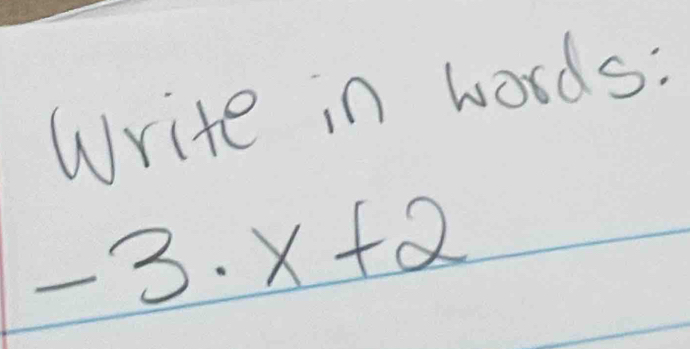 Write in words:
-3·x+2